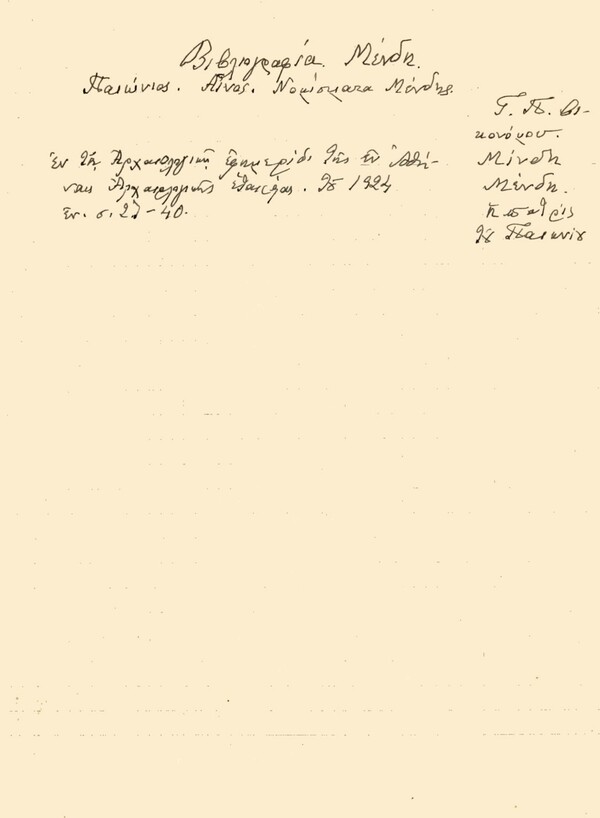 Βιβλιογραφία. Μένδη.
Παιώνιος. Αἶνος. Νομίσματα Μένδης.
Γ. Π. Οἰ-
κονόμου.
Μίνδη
Μένδη.
ἡ πατρὶς
τοῦ Παιωνίου
Ἐν τῇ Ἀρχαιολογικῇ Ἐφημερίδι τῆς ἐν Ἀθή-
ναις Ἀρχαιολογικῆς Ἑταιρείας. τοῦ 1924
ἐν. σ. 27-40.